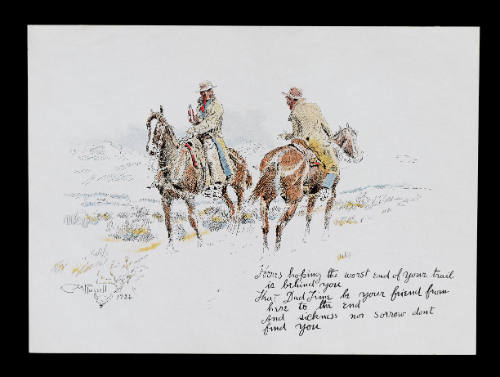 Heres hoping the worst end of your trail
is behind you
That Dad Time be your friend from
here to the end
And sickness nor sorrow dont
find you
CM Russell
1924